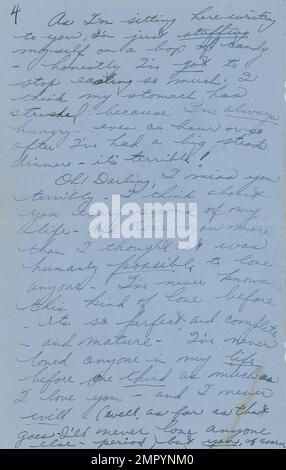 4
As I'm sitting here writing
to you, I'm just stuffing
myself on a box of candy
- honestly I've got to
stop eating so much. I
think my stomach has
streched because I'm always
hungry - even an hour or so
after I've had a big steak
dinner - it's terrible!
Oh! Darling, I miss you
terribly - I think about
you every second of my
life - I love you more
than I thought it was
humanly possible to love
anyone - I've never known
this kind of love before
- it's so perfect and complete
- and mature - I've never
loved anyone in my life
before one third as much as
I love you - and I never
will (well, as far as that
goes - I'll never love anyone
else - period) but you, of course
alamy
Image ID: 2MPYNM0
www.alamy.com